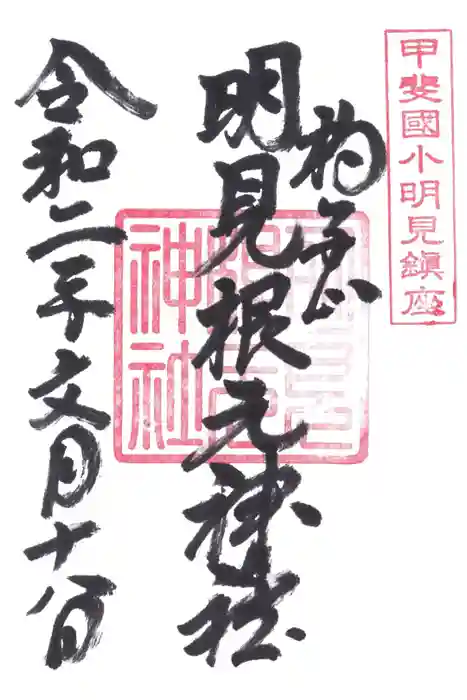 甲斐國小明見鎮座
杓子山
明見根元神社
令和二年文月十八日
神社